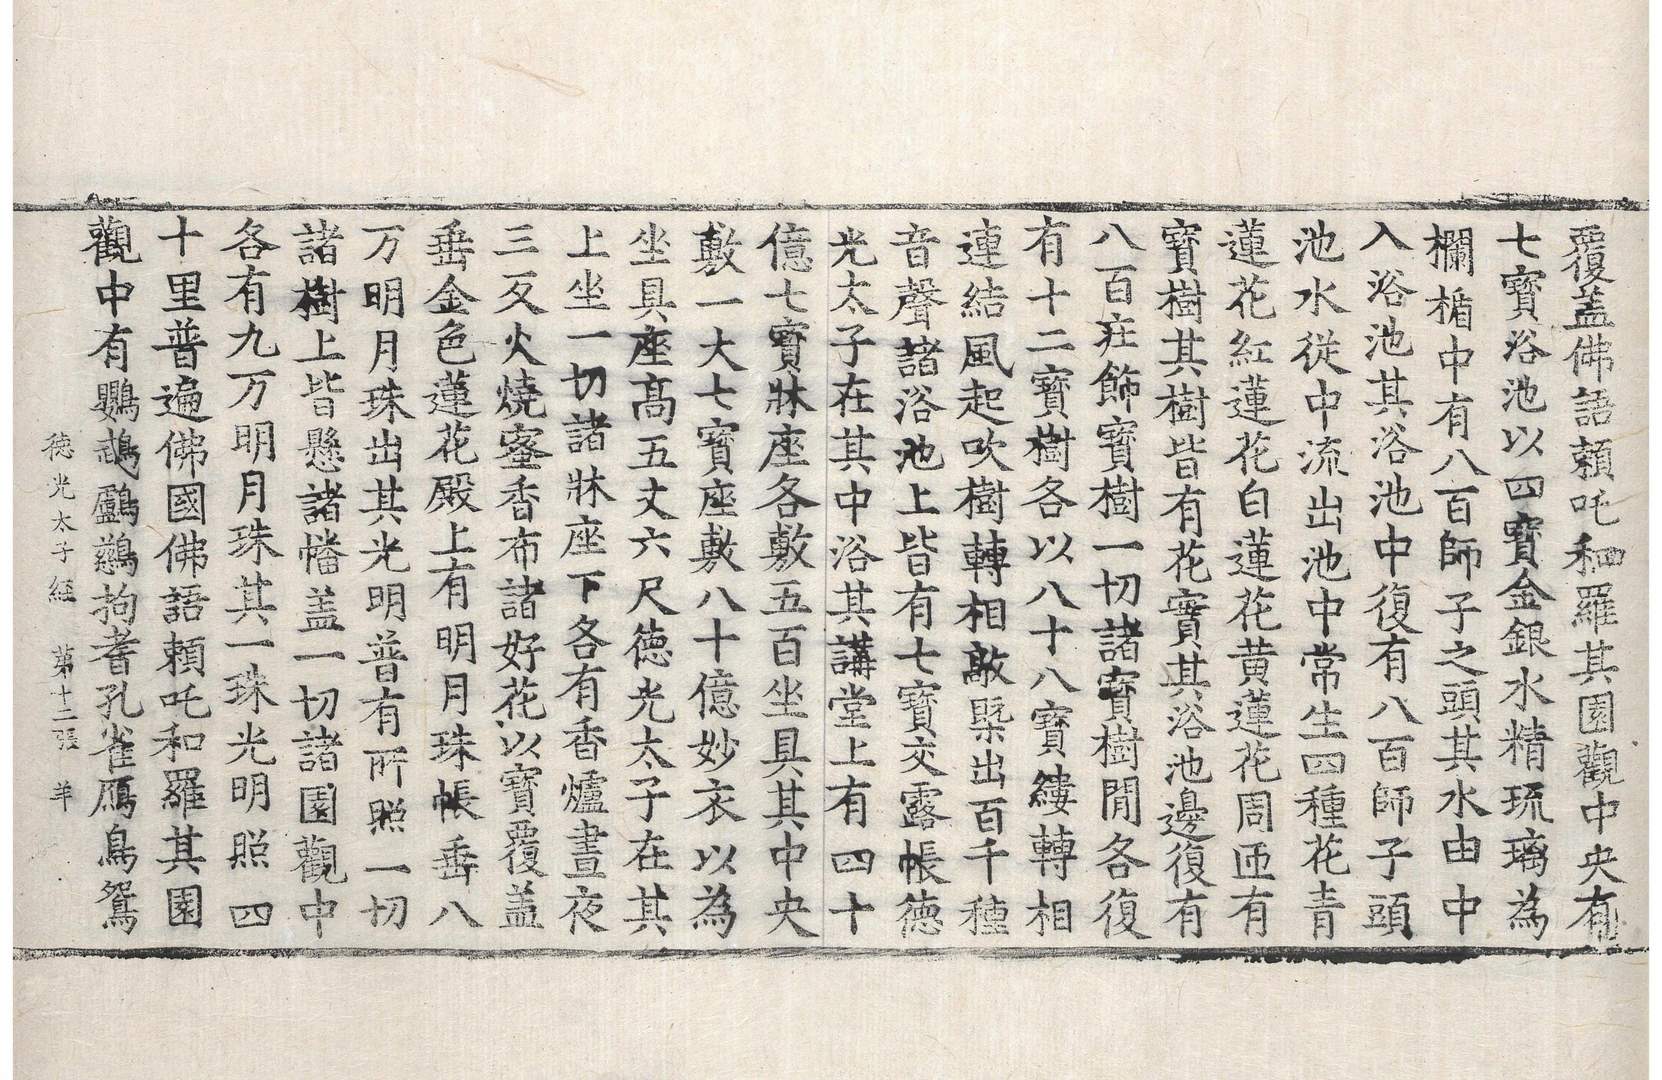 覆盖佛語頼吒和羅其園觀中央有
七寶浴池以四寶金銀水精琉璃為
欄楯中有八百師子之頭其水由中
入浴池其浴池中復有八百師子頭
池水從中流出池中常生四種花青
蓮花紅蓮花白蓮花黄蓮花周匝有
寶樹其樹皆有花實其浴池邊復有
八百莊飾寶樹一切諸寶樹閒各復
有十二寶樹各以八十八寶縷轉相
連結風起吹樹轉相敲槩出百千種
音聲諸浴池上皆有七寶交露帳徳
光太子在其中浴其講堂上有四十
億七寶牀座各敷五百坐具其中央
敷一大七寶座敷八十億妙衣以為
坐具座髙五丈六尺徳光太子在其
上坐一切諸牀座下各有香爐晝夜
三反火燒蜜香布諸好花以寶覆盖
垂金色蓮花殿上有明月珠帳垂八
万明月珠出其光明普有所照一切
諸樹上皆懸諸幡盖一切諸園觀中
各有九万明月珠其一珠光明照四
十里普遍佛國佛語頼吒和羅其園
觀中有鸚鵡鸕鷀拘耆孔雀鴈鳥鴛
徳光太子經　第十二張　羊